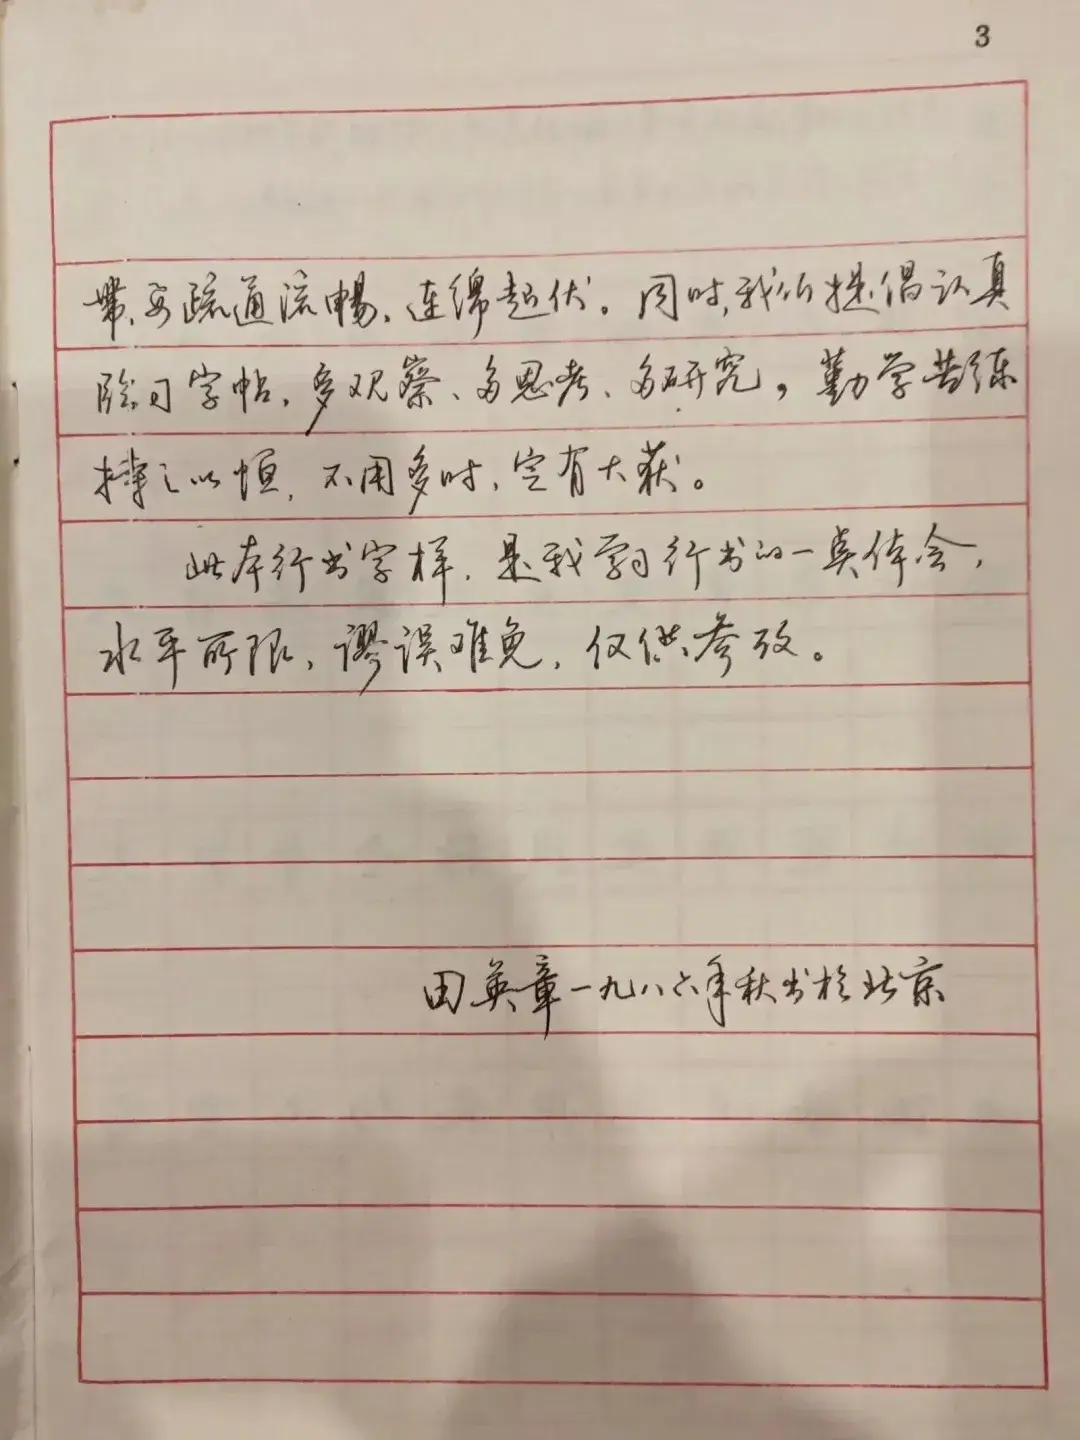 3
带,要疏通流畅、连绵起伏。同时,我们提倡认真
临习字帖,多观察、多思考、多研究,勤学苦练
持之以恒,不用多时,定有大获。
此本行书字样,是我学习行书的一点体会,
水平所限,谬误难免,仅供参考。
田英章一九八六年秋书于北京